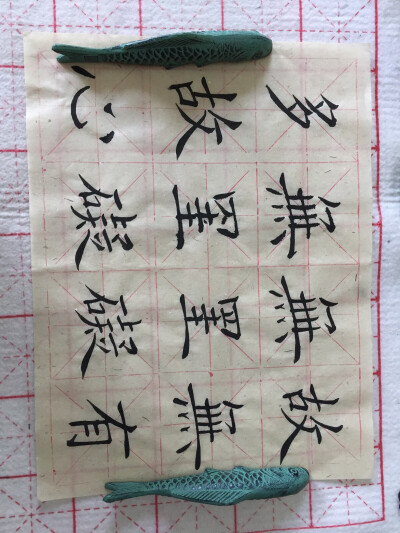 多故心
無罣礙
無罣礙
故無有